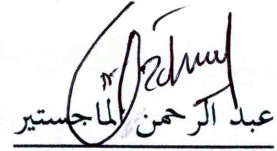 عبد الرحمن الماجستير